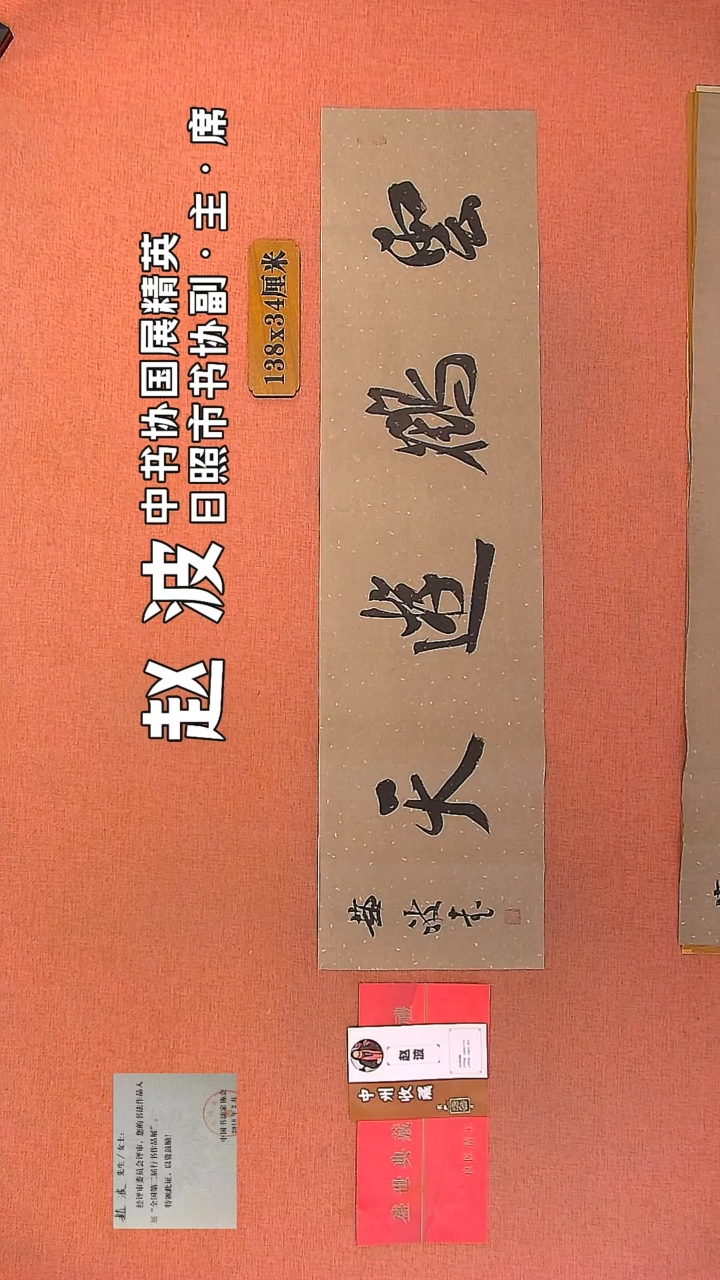 赵波
中书协国展精英
日照市书协副·主·席
138x34厘米
雲鶴遊天
趙波书
赵波
中州收藏
盛世典藏
赵 波 先生/女士:
经评审委员会评审,您的书法作品入
展“全国第二届行书作品展”。
特颁此证,以资鼓励!
中国书法家协会